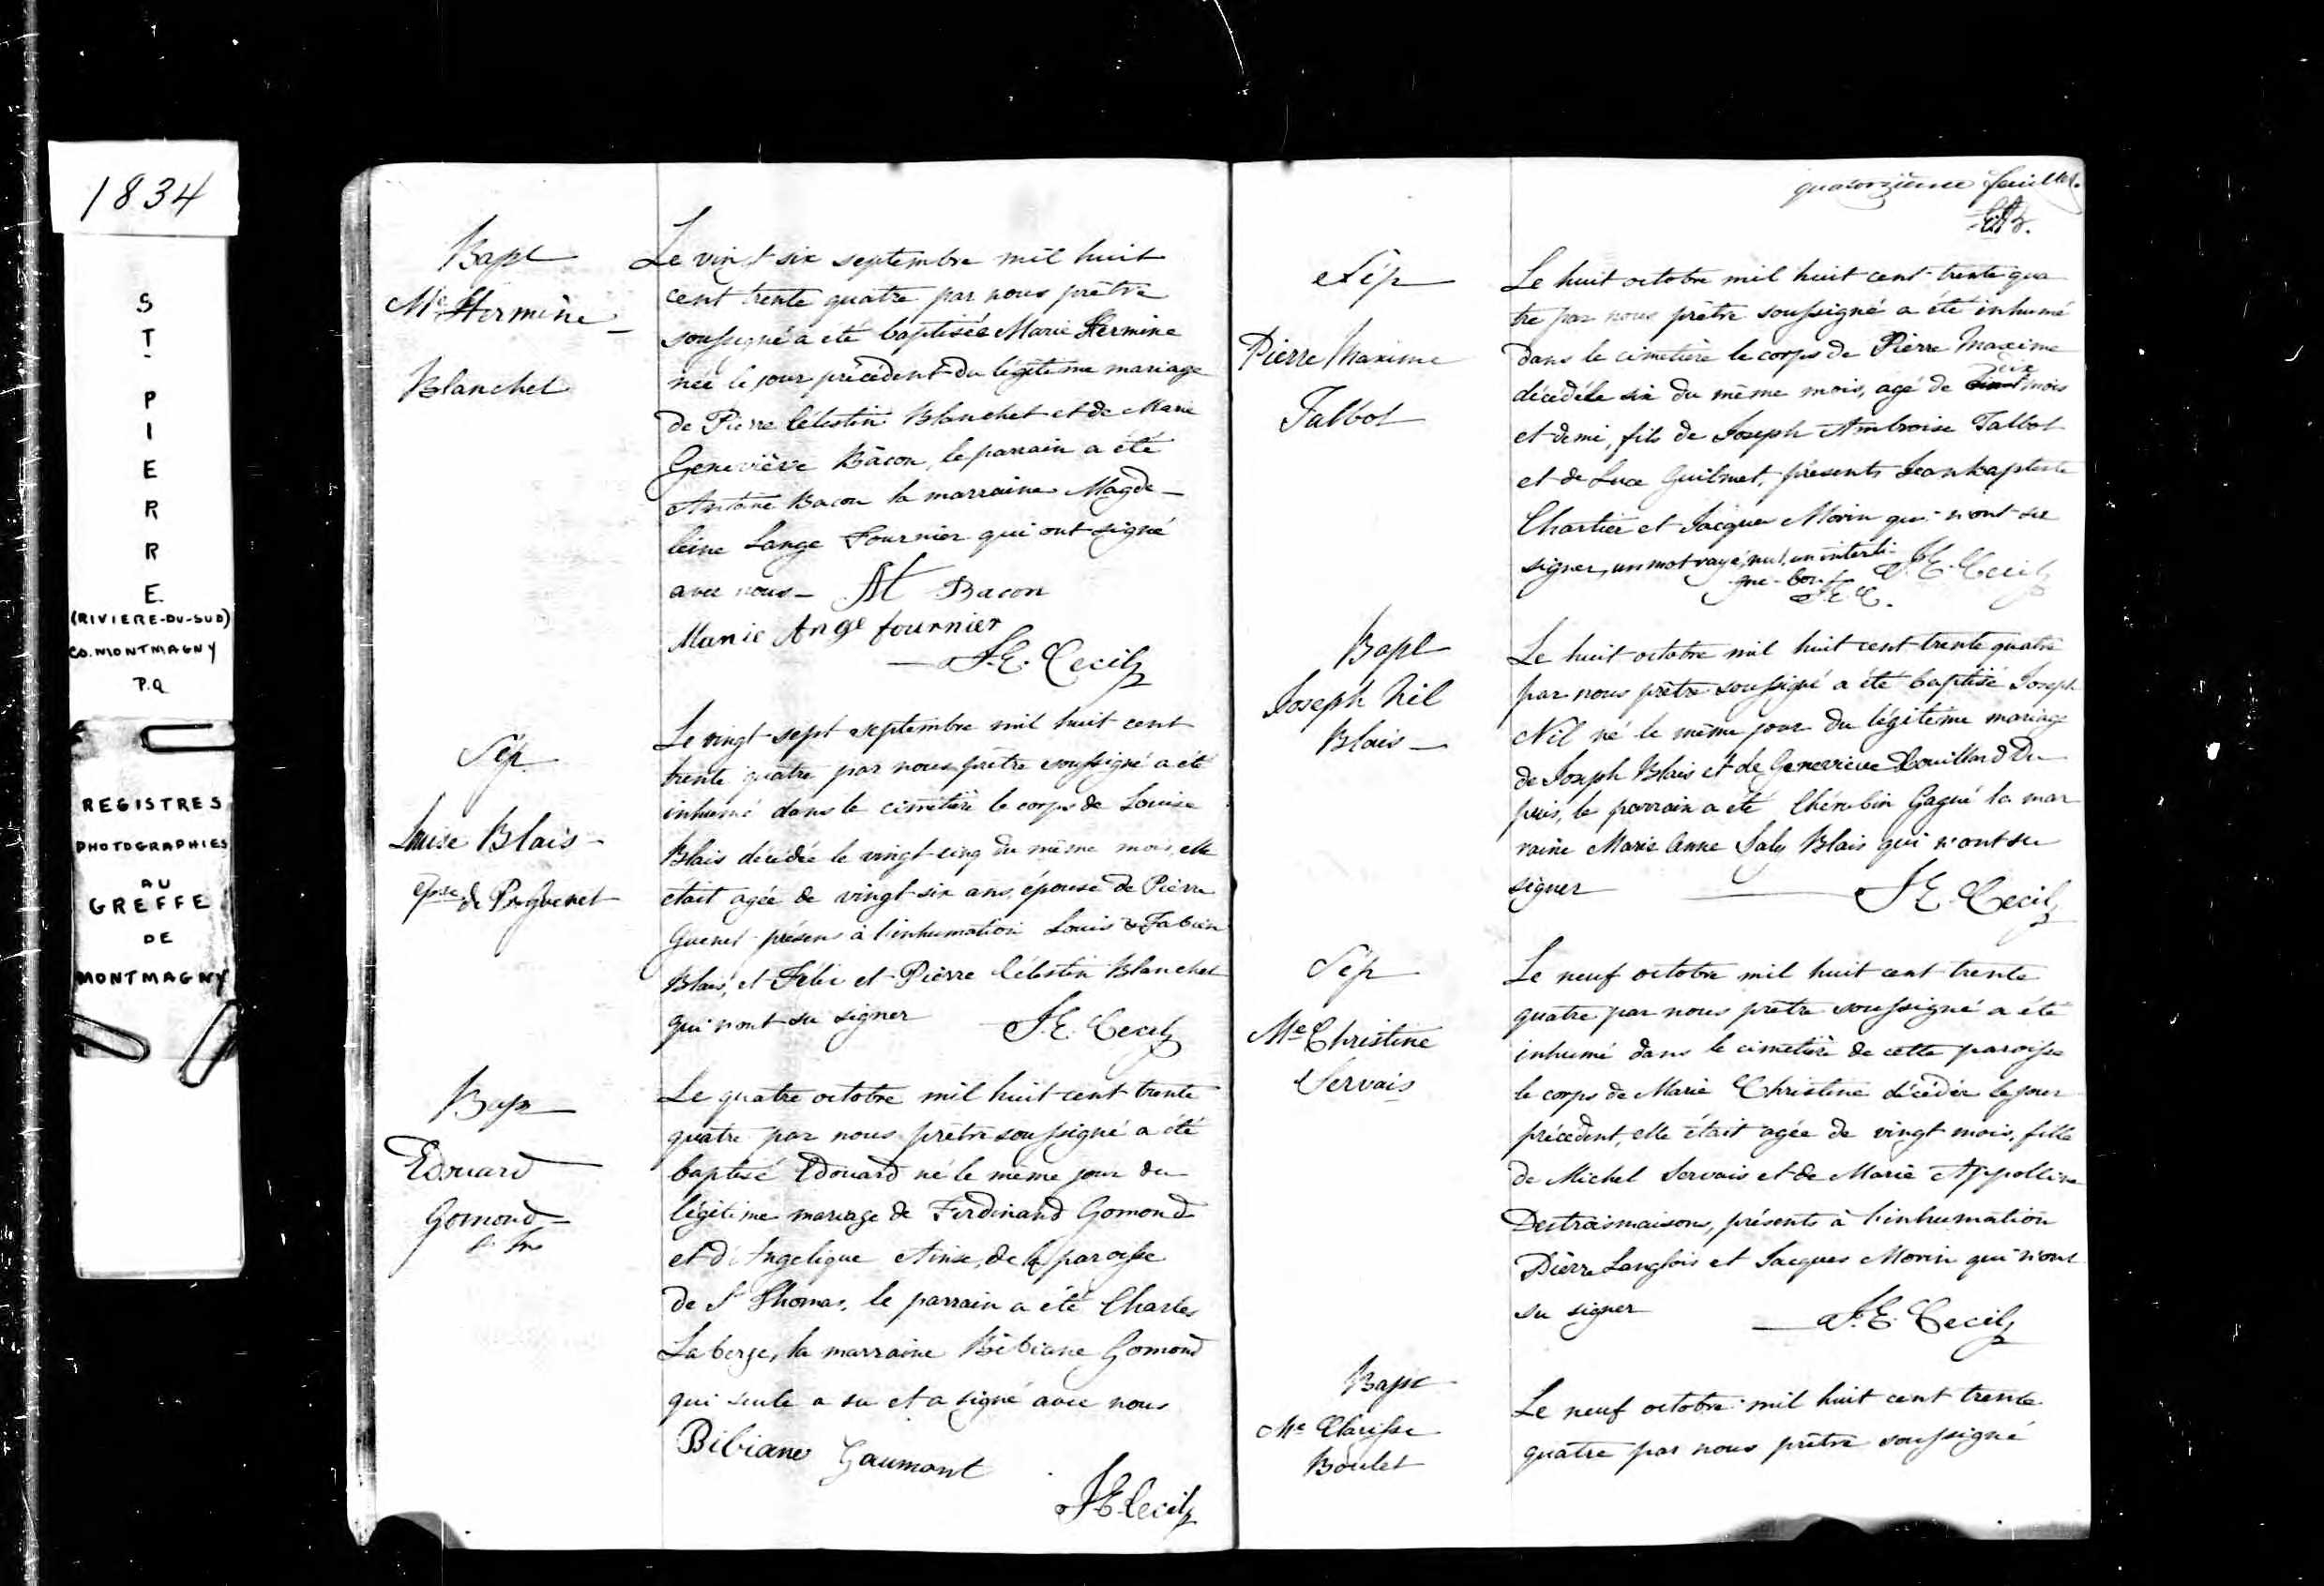 1834
ST
PIERRE
(RIVIERE-DU-SUD)
CO. MONTMAGNY
P.Q
REGISTRES
PHOTOGRAPHIES
AU
GREFFE
DE
MONTMAGNY
Bapt
Mie Hermine
Blanchet
Le vingt six septembre mil huit
cent trente quatre par nous prêtre
soussigné a été baptisée Marie Hermine
née le jour précédent du légitime mariage
de Pierre Célestin Blanchet et de Marie
Geneviève Bâcon, le parrain a été
Antoine Bacon la marraine Magde-
leine Lange Fournier qui ont signé
avec nous - At Bacon
Marie Ange fournier
J. E. Cecil
Sép
Louise Blais
épse de P. Guenet
Le vingt-sept septembre mil huit cent
trente quatre par nous prêtre soussigné a été
inhumé dans le cimetière le corps de Louise
Blais décédée le vingt-cinq du même mois, elle
était agée de vingt-six ans, épouse de Pierre
Guenet présens à l'inhumation Louis & Fabien
Blais, et Felix et Pierre Célestin Blanchet
qui n'ont su signer J. E. Cecil
Bap
Edouard
Gomond
Le quatre octobre mil huit-cent trente
quatre par nous prêtre soussigné a été
baptisé Edouard né le même jour du
légitime mariage de Ferdinand Gomond
et d'Angelique Ainse, de la paroisse
de St Thomas, le parrain a été Charles
Laberge, la marraine Bibiane Gomond
qui seule a su et a signé avec nous
Bibiane Gaumont
J. E. Cecil
quatorzième feuillet.
Sép
Pierre Maxime
Talbot
Le huit octobre mil huit cent-trente qua
tre par nous prêtre soussigné a été inhumé
dans le cimetière le corps de Pierre Maxime
dix
décédé le six du même mois, agé de mois
et demi, fils de Joseph Ambroise Talbot
et de Luce Guilmet, présents Jean baptiste
Chartier et Jacques Morin qui n'ont su
signer, un mot rayé, nul, un interli-
gne - bon J. E. Cecil
J. E. C.
Bapt
Joseph Nil
Blais
Le huit octobre mil huit cent trente quatre
par nous prêtre soussigné a été baptisé Joseph
Nil né le même jour du légitime mariage
de Joseph Blais et de Genevieve Couillard Du
puis, le parrain a été Chérubin Gagné la mar
raine Marie Anne Saly Blais qui n'ont su
signer J. E. Cecil
Sép
Mie Christine
Servais
Le neuf octobre mil huit cent trente
quatre par nous prêtre soussigné a été
inhumé dans le cimetière de cette paroisse
le corps de Marie Christine décédée le jour
précédent, elle était agée de vingt mois, fille
de Michel Servais et de Marie Appolline
Destroismaisons, présents à l'inhumation
Pierre Langlois et Jacques Morin qui n'ont
su signer J. E. Cecil
Bapt
Mie Clarisse
Boulet
Le neuf octobre mil huit cent trente
quatre par nous prêtre soussigné